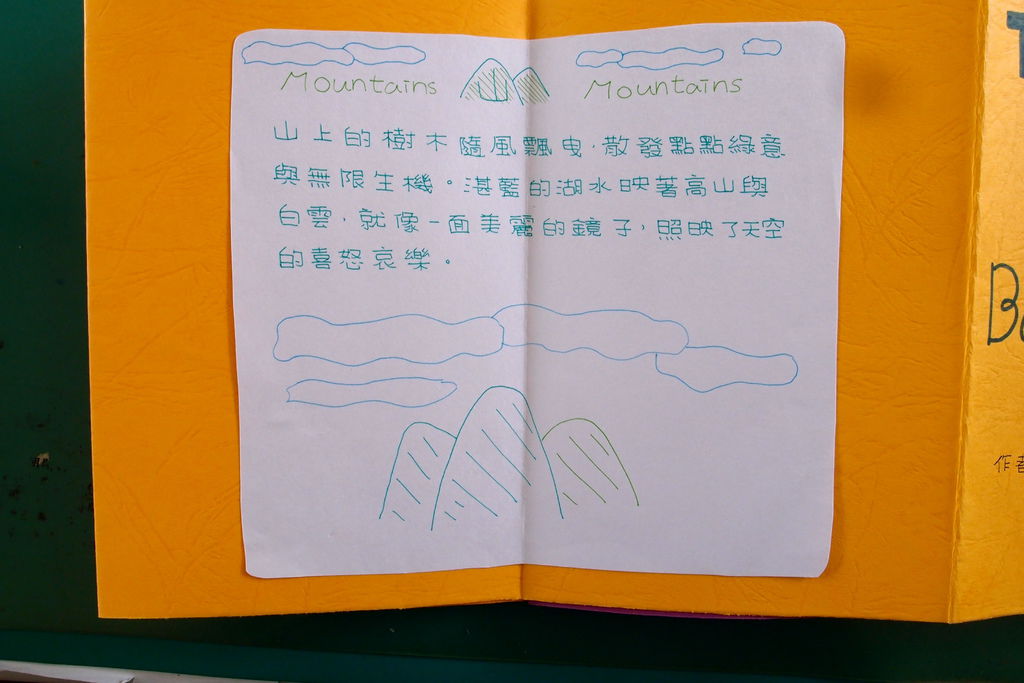 Mountains Mountains
山上的樹木隨風飄曳,散發點點綠意
與無限生機。湛藍的湖水映著高山與
白雲,就像一面美麗的鏡子,照映了天空
的喜怒哀樂。
作者